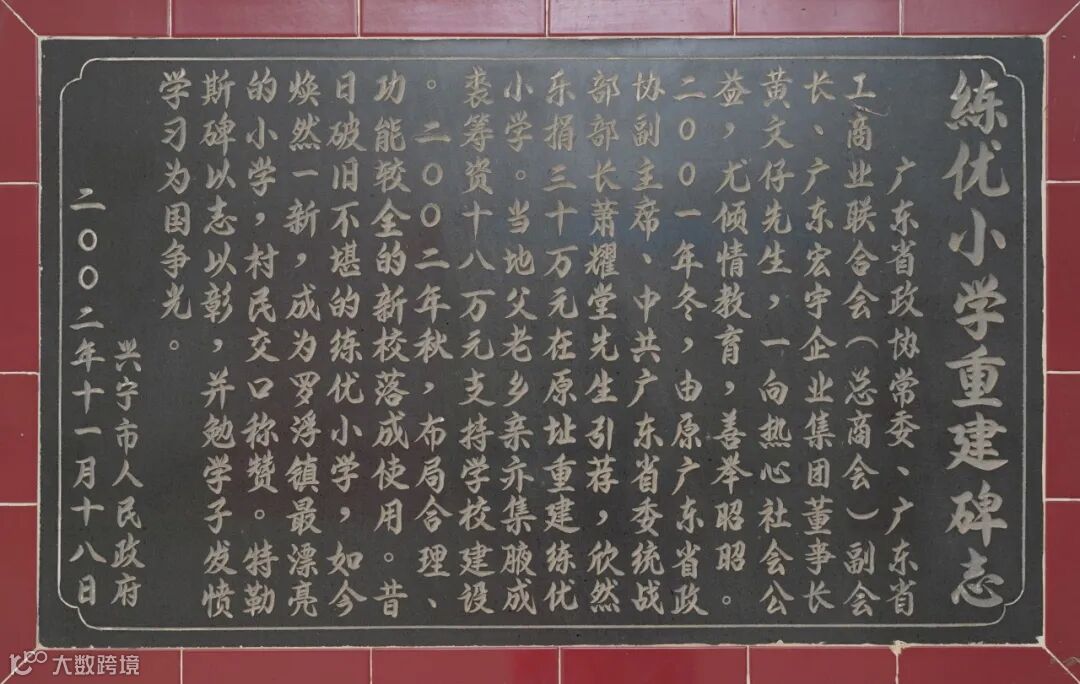 练优小学重建碑志
广东省政协常委、广东省
工商业联合会(总商会)副会
长、广东宏宇企业集团董事长
黄文仔先生,一向热心社会公
益,尤倾情教育,善举昭昭。
二〇〇一年冬,由原广东省政
协副主席、中共广东省委统战
部部长萧耀堂先生引荐,欣然
乐捐三十万元在原址重建练优
小学。当地父老乡亲亦集腋成
裘筹资十八万元支持学校建设
。二〇〇二年秋,布局合理、
功能较全的新校落成使用。昔
日破旧不堪的练优小学,如今
焕然一新,成为罗浮镇最漂亮
的小学,村民交口称赞。特勒
斯碑以志以彰,并勉学子发愤
学习为国争光。
兴宁市人民政府
二〇〇二年十一月十八日
大数跨境